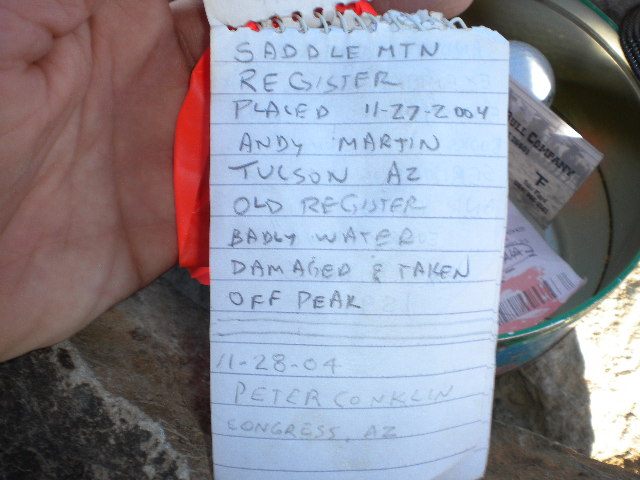 SADDLE MTN
REGISTER
PLACED 11-27-2004
ANDY MARTIN
TUCSON AZ
OLD REGISTER
BADLY WATER
DAMAGED & TAKEN
OFF PEAK
11-28-04
PETER CONKLIN
CONGRESS, AZ
COMPANY
F